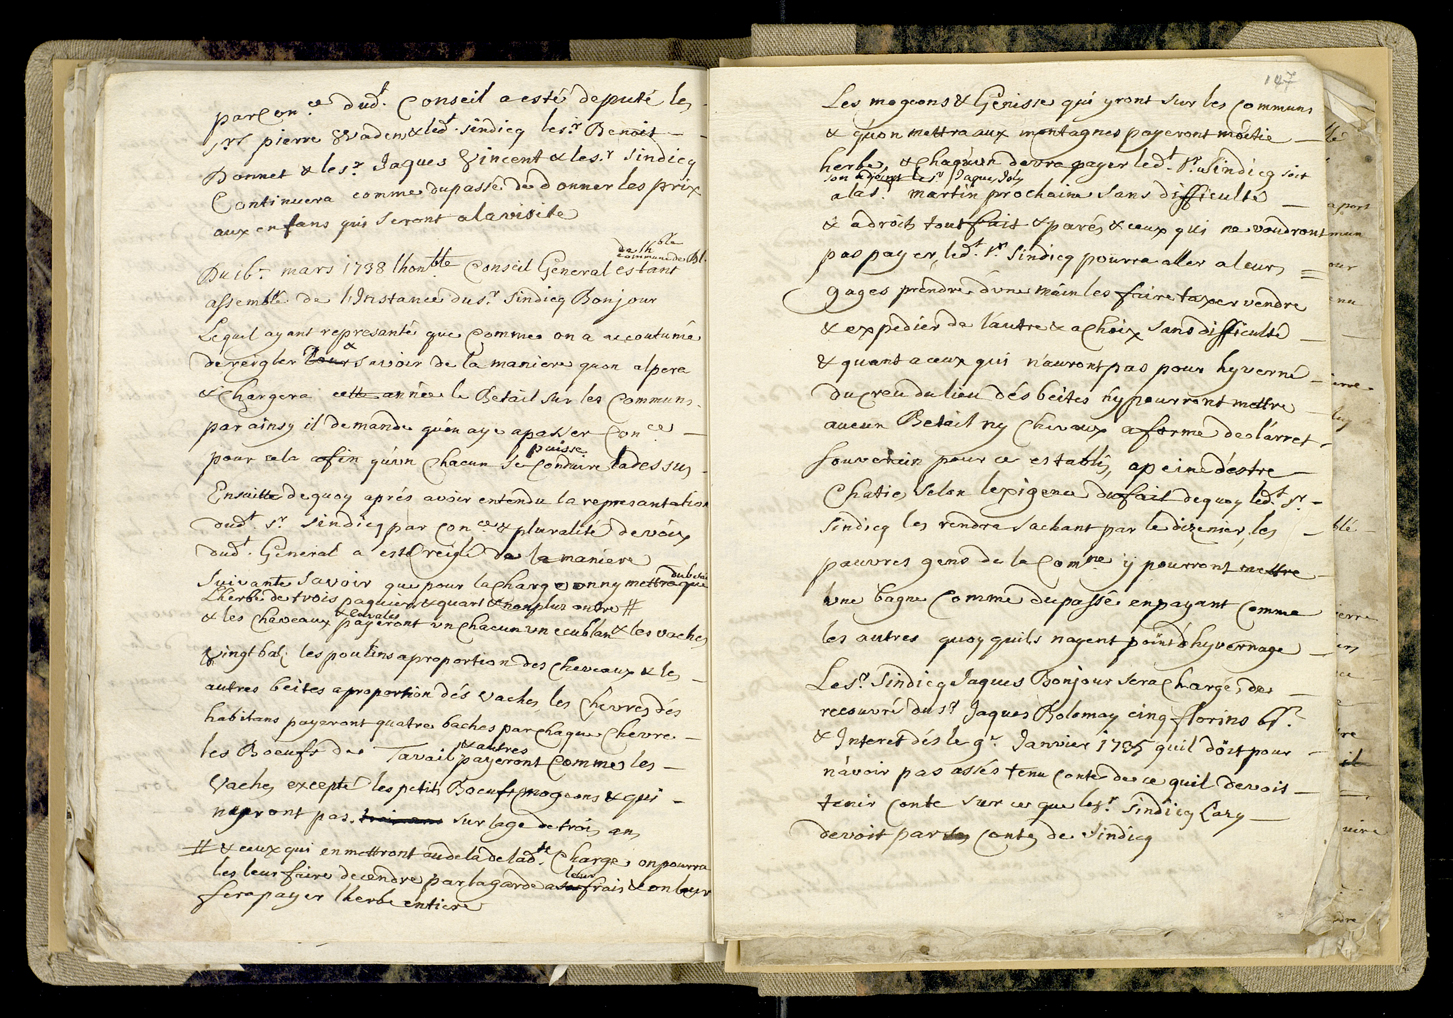 par Con.ce dud.t Conseil a esté deputé les
S.rs pierre Vaden & led.t sindicq le s.r Benoit
Bonnet & le s.r Jaques Vincent & le s.r Sindicq
Continuera comme du passé de donner les prix
aux enfans qui seront a la visite
de lh.ble commune de Bl.
Du 16.e mars 1738 lhon.ble Conseil General estant
assemblé de l'Instance du s.r Sindicq Bonjour
Lequel ayant representé que Comme on a accoutumé
de reigler & savoir de la maniere quon alpera
& Chargera cette année le Betail sur les Communs
par ainsy il demande quon aye a passer Con.ce
puisse
pour cela afin qu'un chacun se Conduire ladessus
Ensuitte de quoy aprés avoir entendu la representation
dud.t s.r Sindicq par Con.ce & pluralité de voix
dud.t General a esté reiglé de la maniere
du betail
Suivante Savoir que pour la charge on ny mettra que
Lherbe de trois paquier & quart & non plus outre #
& cavales
& les chevaux payeront un chacun un ecublan & les vaches
vingt bat; les poulins a proportion des cheveaux & les
autres beites a proportion dés vaches les chevres dés
habitans payeront quatres baches par chaque chevre
& autres
les Boeufs de Tavail payeront Comme les
Vaches excepté les petits Boeufs mogeons & qui
nyront pas sur lage de trois ans
# & ceux qui en mettront au dela de lad.te Charge on pourra
leur
les leur faire decendre par la garde a frais & on leur
fera payer lherbe entiere
147
Les mogeons & Génisse qui yront sur les Communs
& quon mettra aux montagnes payeront moitie
herbe, & chaqu'un devra payer led.t S.r Sindicq soit
son adjoint le s.r Jaques Joly
a la s.t martin prochaine Sans difficulté
& a droit tout fait & parés & ceux qui ne voudront
pas payer, led.t S.r Sindicq pourra aller a leurs
gages prendre d'une main les faire taxer vendre
& expedier de l'autre & a choix Sans difficulté
& quant a ceux qui n'auront pas pour hyverné
du creu du lieu dés beites ny pourront mettre
aucun Betail ny Chevaux a forme de l'arret
souverain pour ce establis, a peine d'estre
Chatie selon lexigence du fait de quoy led.t S.r
Sindicq les rendra sachant par le dizenier, les
pauvres gens de la Com.ne ij pourront mettre
une bague Comme du passé en payant comme
les autres quoy quils nayent point d'hyvernage
Le s.r Sindicq Jaques Bonjour sera Chargé, de
recouvré du s.r Jaques Bolomay cinq florins 6 s.
& Interet dés le 9.e Janvier 1735 quil doit pour
n'avoir pas assés tenu conte de ce quil devoit
tenir conte sur ce que le s.r Sindicq Cary
devoit par conte de Sindicq